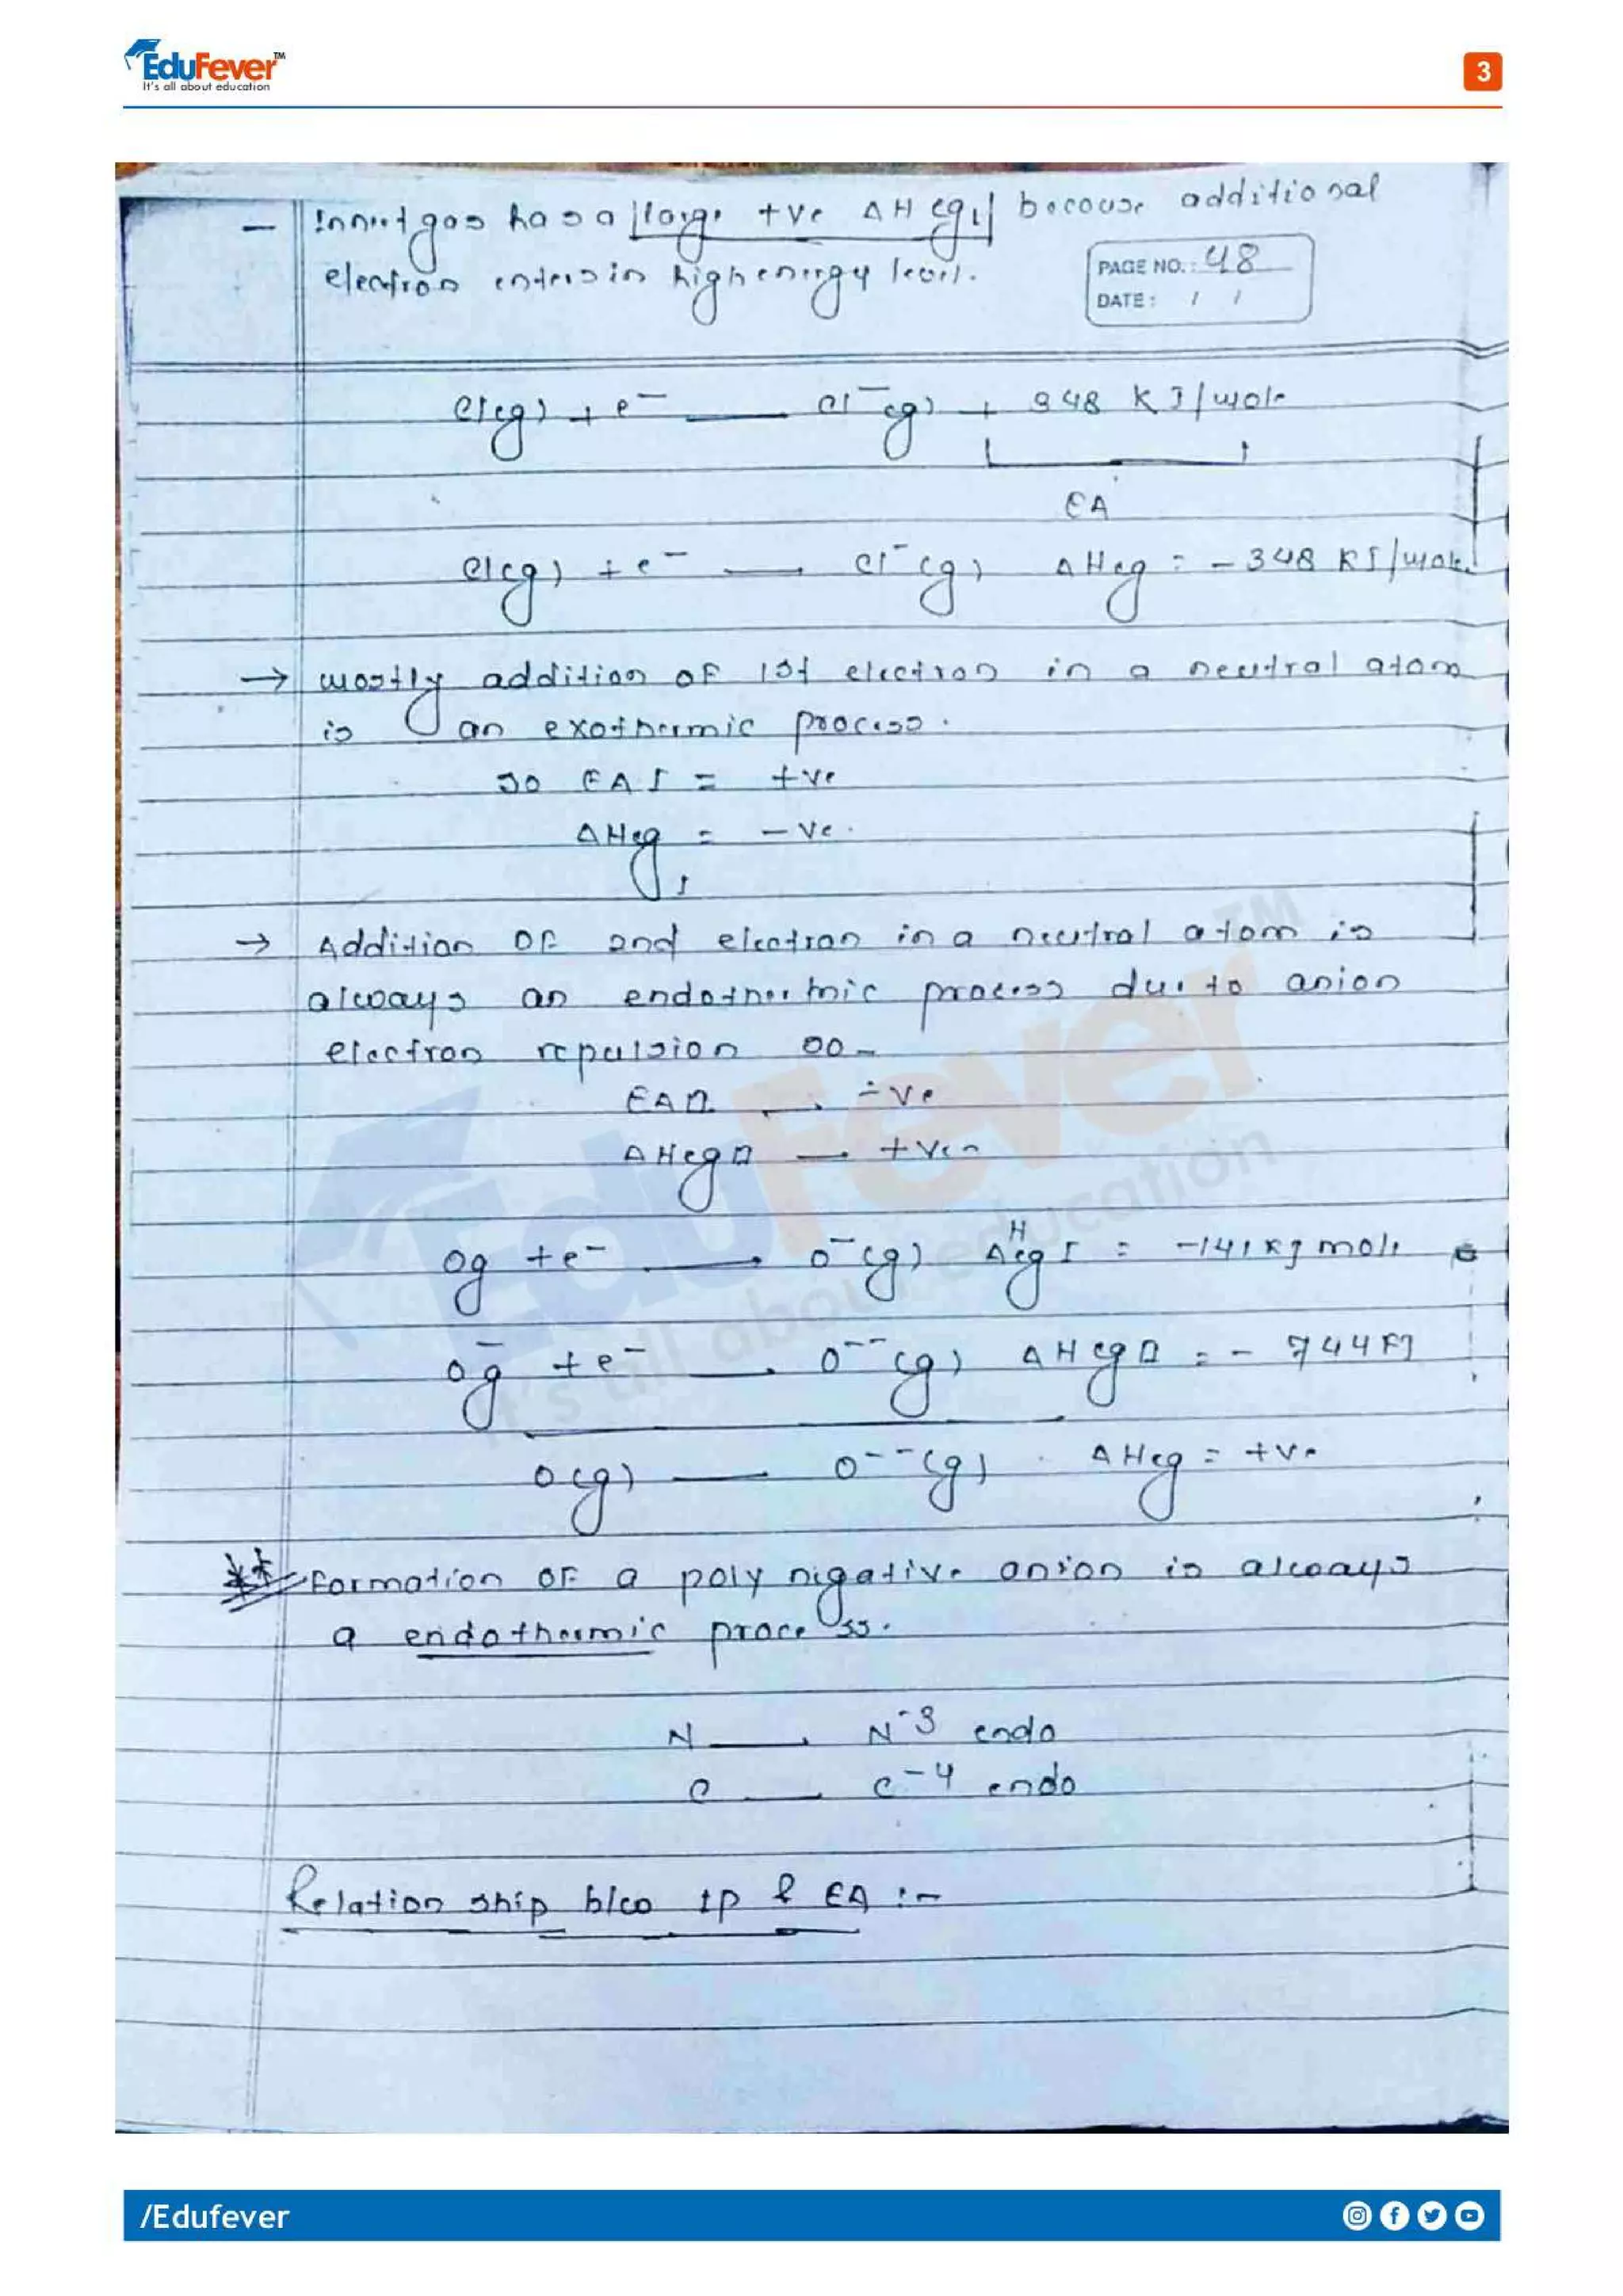 EduFever™
It's all about education
3
– Innert gas has a large +ve ΔHeg1 because additional
electron enters in high energy level.
PAGE NO.: 48
DATE: / /
Cl(g) + e⁻ — Cl⁻(g) + 348 KJ/mole
EA
Cl(g) + e⁻ — Cl⁻(g) ΔHeg = -348 KJ/mole
→ mostly addition of 1st electron in a neutral atom
is an exothermic process.
so EA I = +ve
ΔHeg I = -ve.
→ Addition OF 2nd electron in a neutral atom is
always an endothermic process due to anion
electron repulsion so -
EA II → -ve
ΔHeg II → +ve
Og + e⁻ → O⁻(g) ΔHeg I = -141 KJ mole
O⁻g + e⁻ → O⁻⁻(g) ΔHeg II = - 744 KJ
O(g) — O⁻⁻(g) ΔHeg = +ve
** Formation OF a poly nigative anion is always
a endothermic process.
N → N⁻³ endo
C → C⁻⁴ endo
Relation ship b/w IP & EA :-
/Edufever